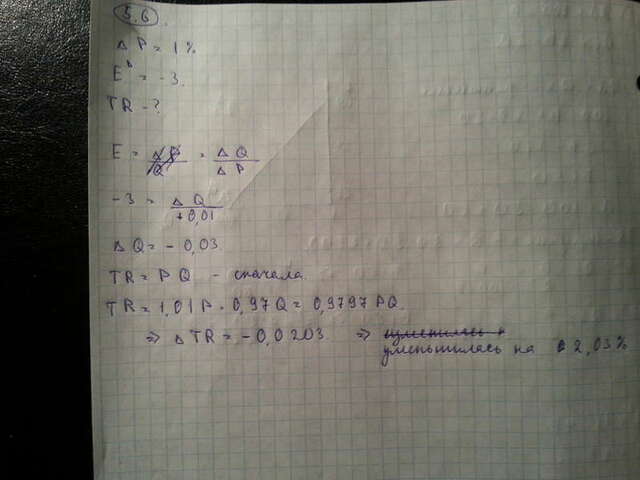 5.6.
Δ P = 1%
E^D = -3.
TR - ?
E = ΔP/Q = ΔQ/ΔP
-3 = ΔQ/+0,01
ΔQ = -0,03.
TR = PQ - сначала.
TR = 1,01P · 0,97Q = 0,9797 PQ.
⇒ ΔTR = -0,0203 ⇒
уменьшилась на 2,03%